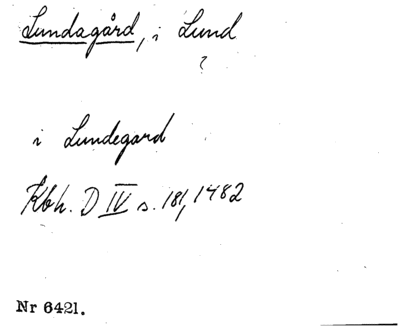 Lundagård, i Lund
?
i Lundegard
Kbh. D IV s. 181, 1482
Nr 6421.